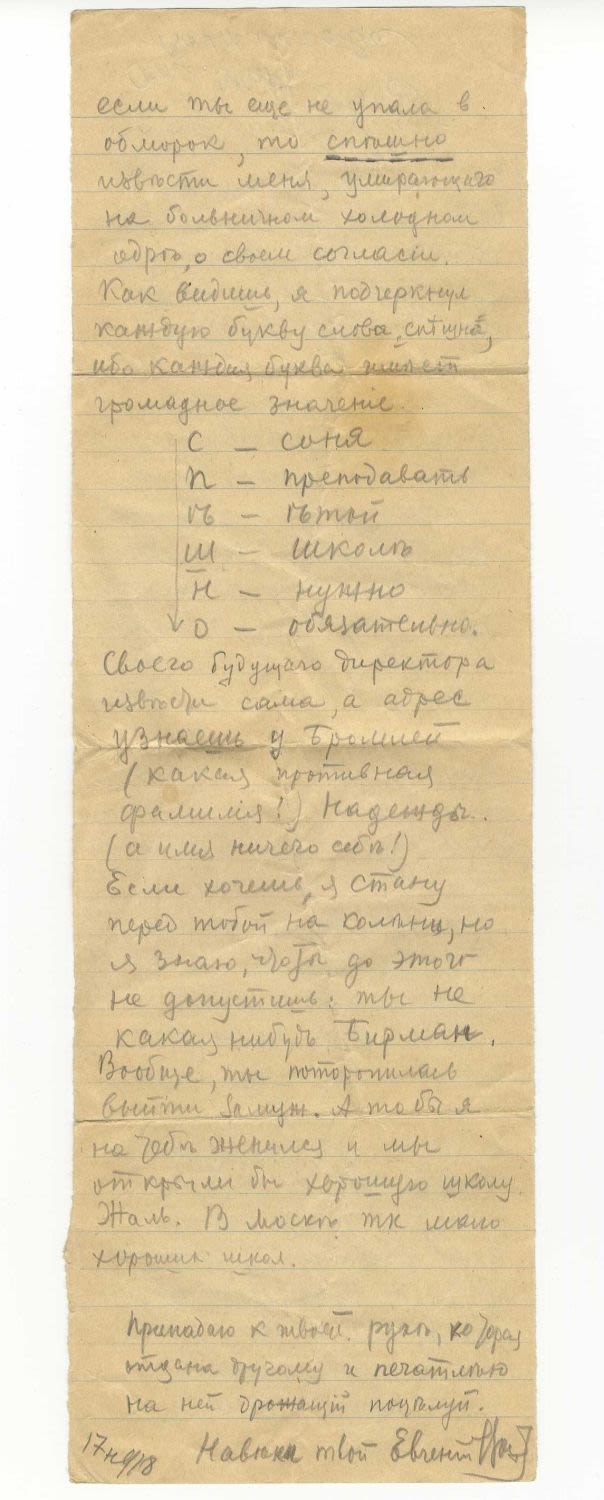 если ты еще не упала в
обморок, то спѣшно
извѣсти меня, умирающаго
на больничном холодном
одрѣ, о своем согласіи.
Как видишь, я подчеркнул
каждую букву слова „спѣшно“,
ибо каждая буква имѣет
громадное значеніе.
С — Соня
п — преподавать
ѣ — ѣтой
ш — школѣ
н — нужно
о — обязательно.
Своего будущаго директора
извѣсти сама, а адрес
узнаешь у Бромлей
(какая противная
фамилія!) Надежды.
(а имя ничего себѣ!)
Если хочешь, я стану
перед тобой на колѣни, но
я знаю, что ты до этого
не допустишь: ты не
какая нибудь Бирман.
Вообще, ты поторопилась
выйти замуж. А то бы я
на тебѣ женился и мы
открыли бы хорошую школу.
Жаль. В Москвѣ так мало
хороших школ.
Припадаю к твоей рукѣ, которая
отдана другому и печатлѣю
на ней дрожащій поцѣлуй.
Навѣки твой Евгеній
17